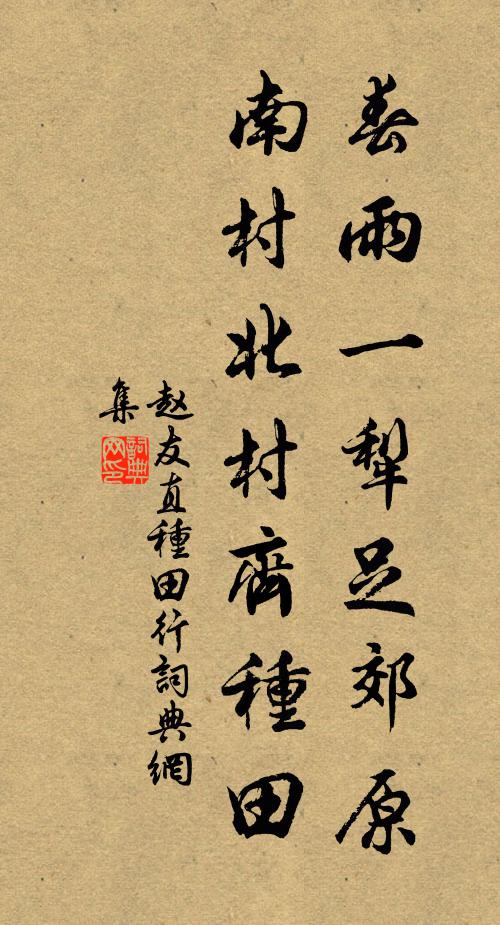 春雨一犁足郊原
南村北村齊種田
赵友直種田行詞典網
集
詞典网印